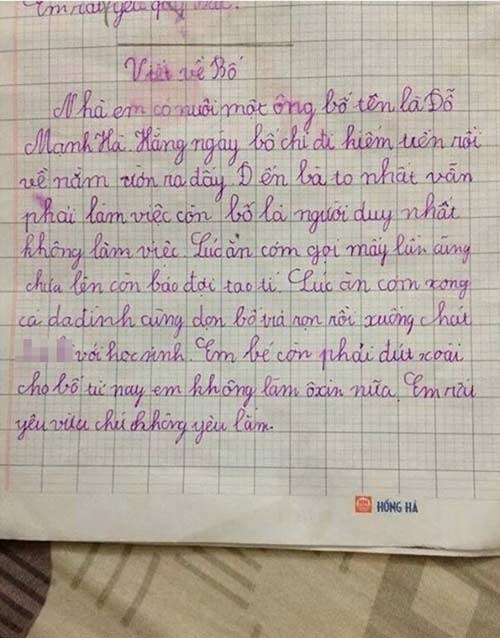 Em rất yêu quý
Viết về Bố
Nhà em có nuôi một ông bố tên là Đỗ
Mạnh Hà. Hằng ngày bố chỉ đi kiếm tiền rồi
về nằm ườn ra đấy. Đến bà to nhất vẫn
phải làm việc còn bố là người duy nhất
không làm việc. Lúc ăn cơm gọi mấy lần cũng
chưa lên còn bảo đợi tao tí. Lúc ăn cơm xong
cả da đình cùng dọn bố vừa dọn rồi xuống chat
với học sinh. Em bé còn phải đút xoài
cho bố từ nay em không làm ôxin nữa. Em rất
yêu vừa chứ không yêu lắm.
HỒNG HÀ